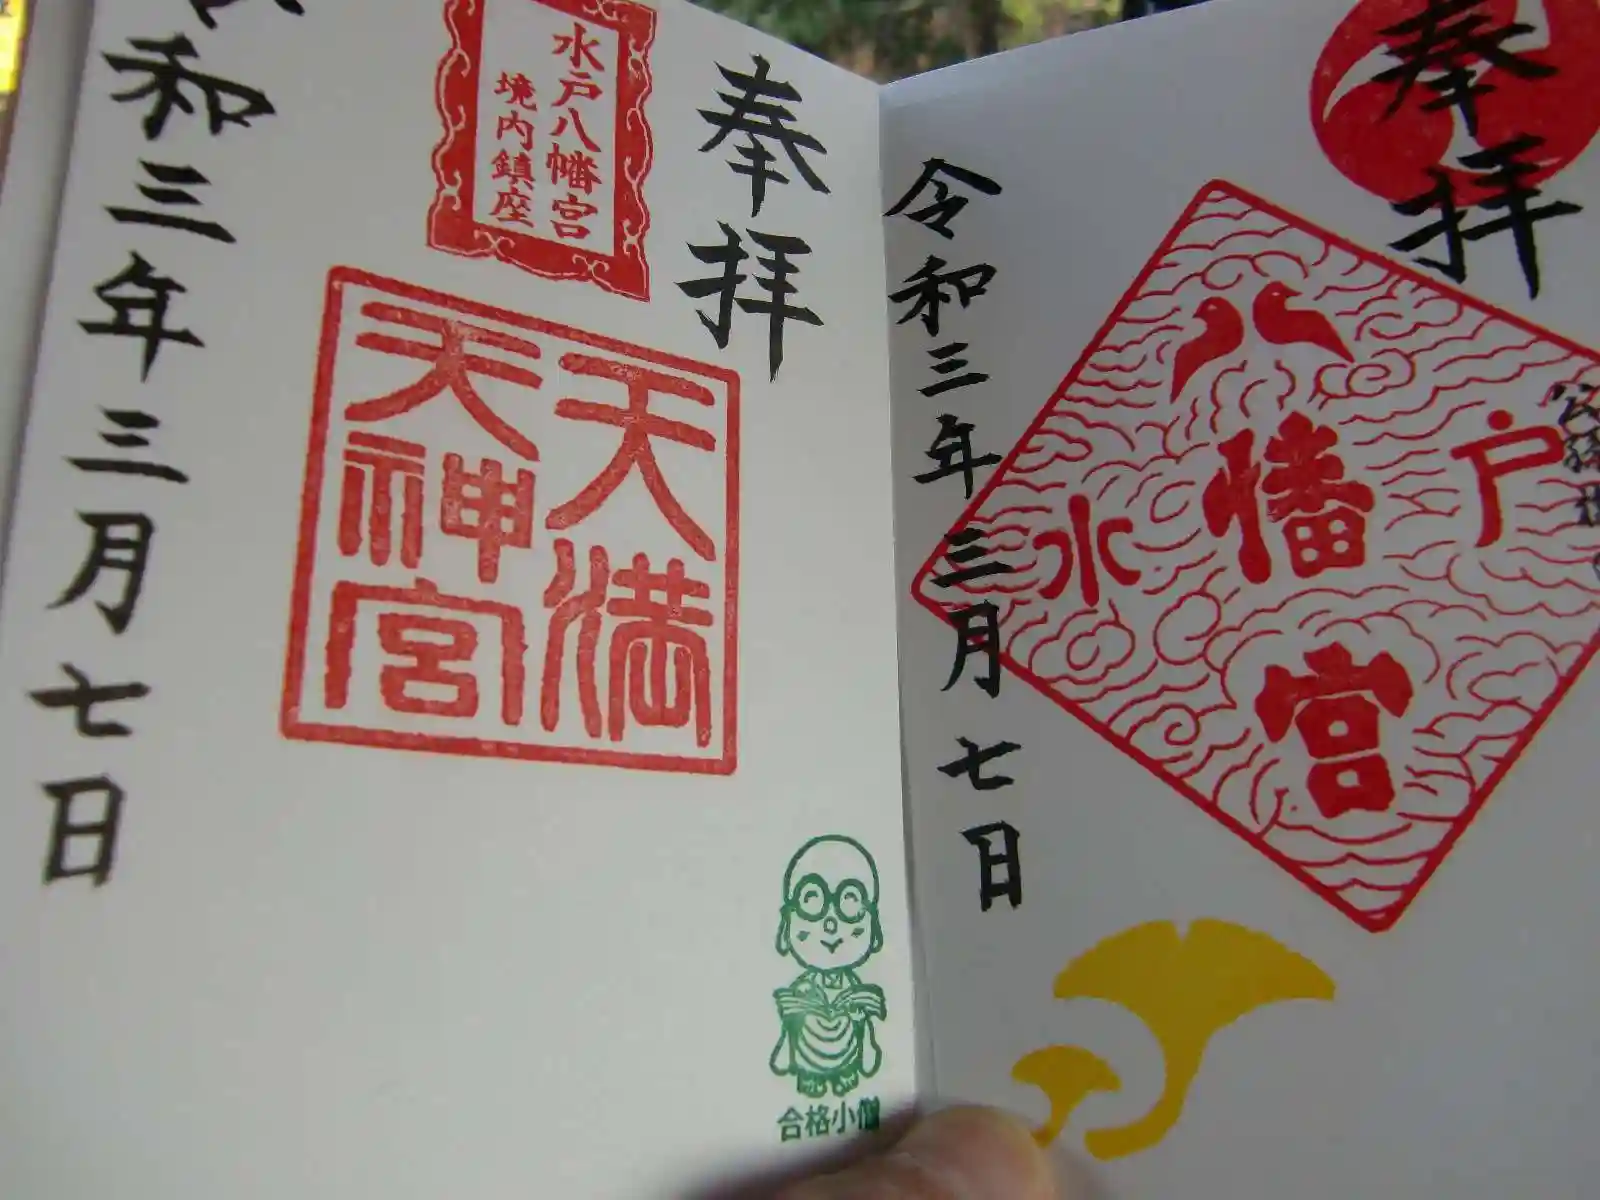 奉拝
水戸八幡宮
境内鎮座
天満
天神宮
令和三年三月七日
合格小僧
奉拝
水戸
八幡宮
令和三年三月七日